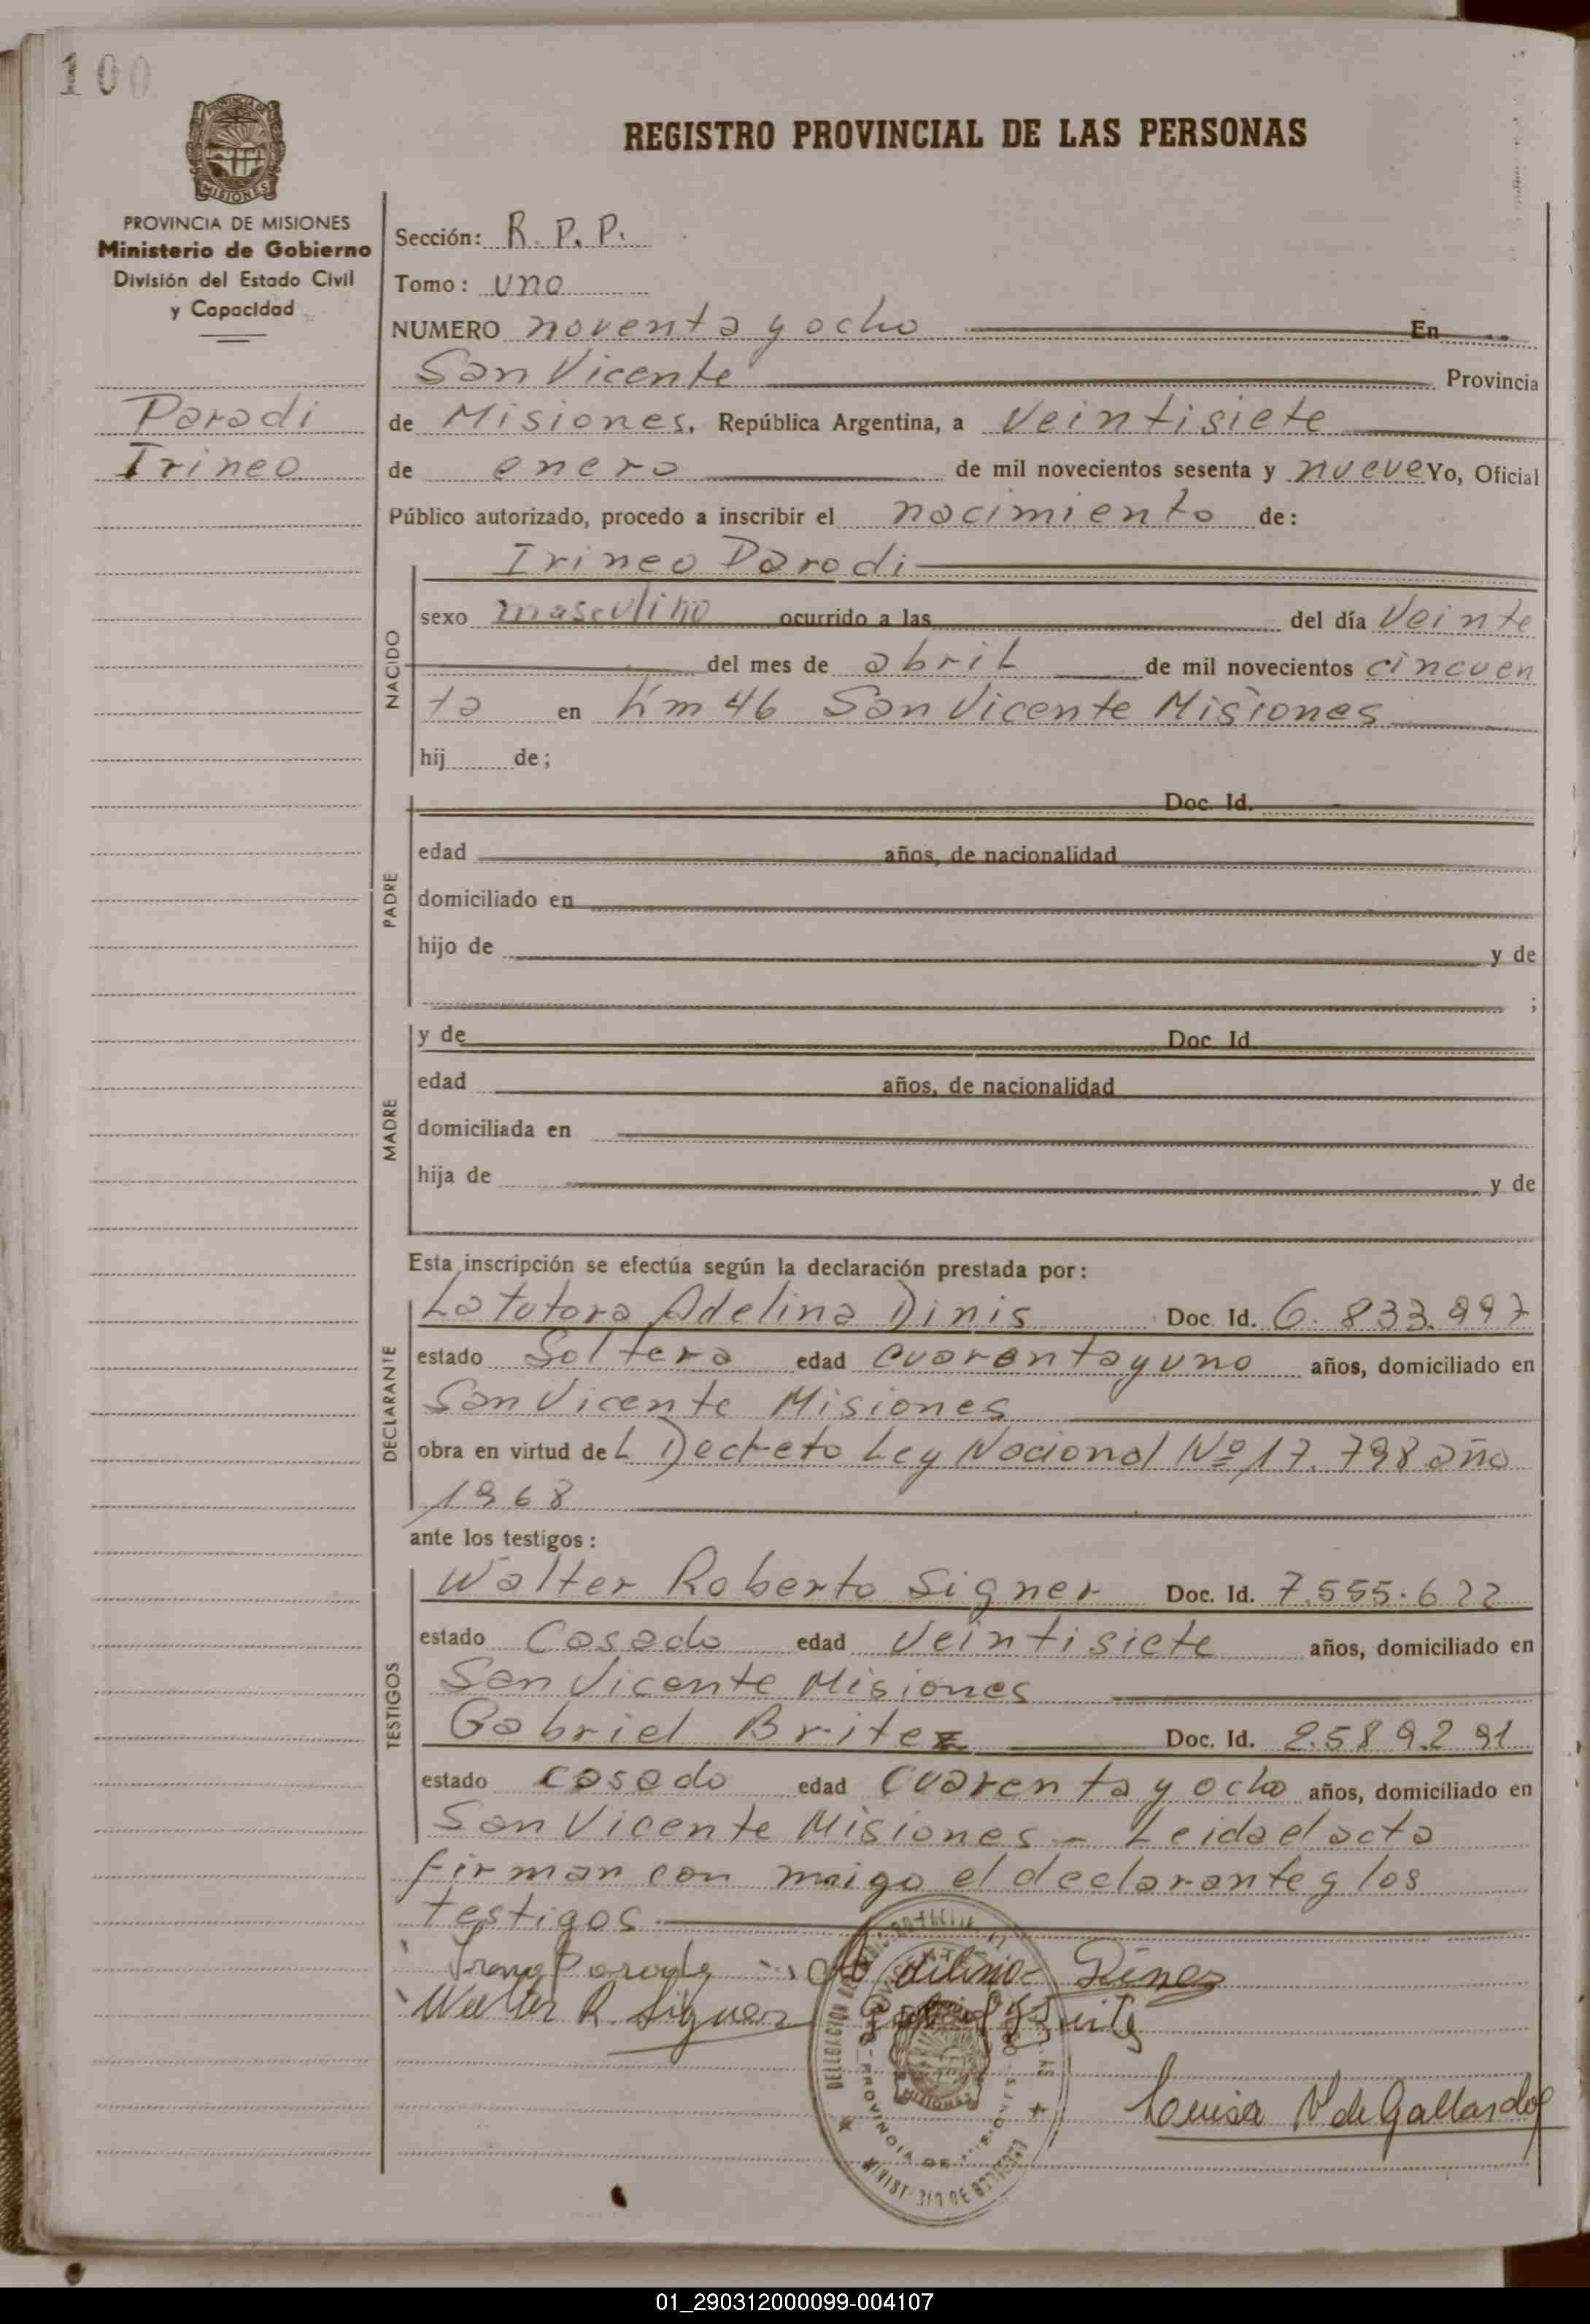 100
PROVINCIA DE MISIONES
Ministerio de Gobierno
División del Estado Civil
y Capacidad
Parodi
Irineo
REGISTRO PROVINCIAL DE LAS PERSONAS
Sección: R. P. P.
Tomo: uno
NUMERO noventa y ocho En
San Vicente Provincia
de Misiones, República Argentina, a Veintisiete
de enero de mil novecientos sesenta y nueve Yo, Oficial
Público autorizado, procedo a inscribir el nacimiento de:
NACIDO
Irineo Parodi
sexo masculino ocurrido a las del día Veinte
del mes de abril de mil novecientos cincuen
ta en Km 46 San Vicente Misiones
hij de;
PADRE
Doc. Id.
edad años, de nacionalidad
domiciliado en
hijo de y de
;
MADRE
y de Doc. Id
edad años, de nacionalidad
domiciliada en
hija de y de
Esta inscripción se efectúa según la declaración prestada por:
DECLARANTE
La tutora Adelina Dinis Doc. Id. 6.833.997
estado Soltera edad cuarenta y uno años, domiciliado en
San Vicente Misiones
obra en virtud del Decreto Ley Nacional Nº 17.798 año
1968
ante los testigos:
TESTIGOS
Walter Roberto Signer Doc. Id. 7.555.622
estado Casado edad Veintisiete años, domiciliado en
San Vicente Misiones
Gabriel Britez Doc. Id. 2.589.291
estado casado edad Cuarenta y ocho años, domiciliado en
San Vicente Misiones - Leida el acta
firman con migo el declarante y los
testigos.
Walter R. Signer
Luisa V de Gallardo
MISIONES
PROVINCIA DE MISIONES
01_290312000099-004107